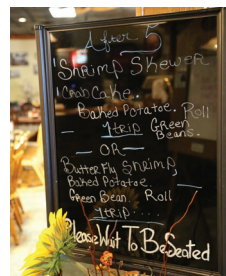 After 5
Shrimp Skewer
Crab Cake.
Baked Potatoe. Roll
1 trip Green
Beans.
— OR —
Butterfly Shrimp,
Baked Potatoe.
Green Bean. Roll
1 trip....
Please Wait To Be Seated